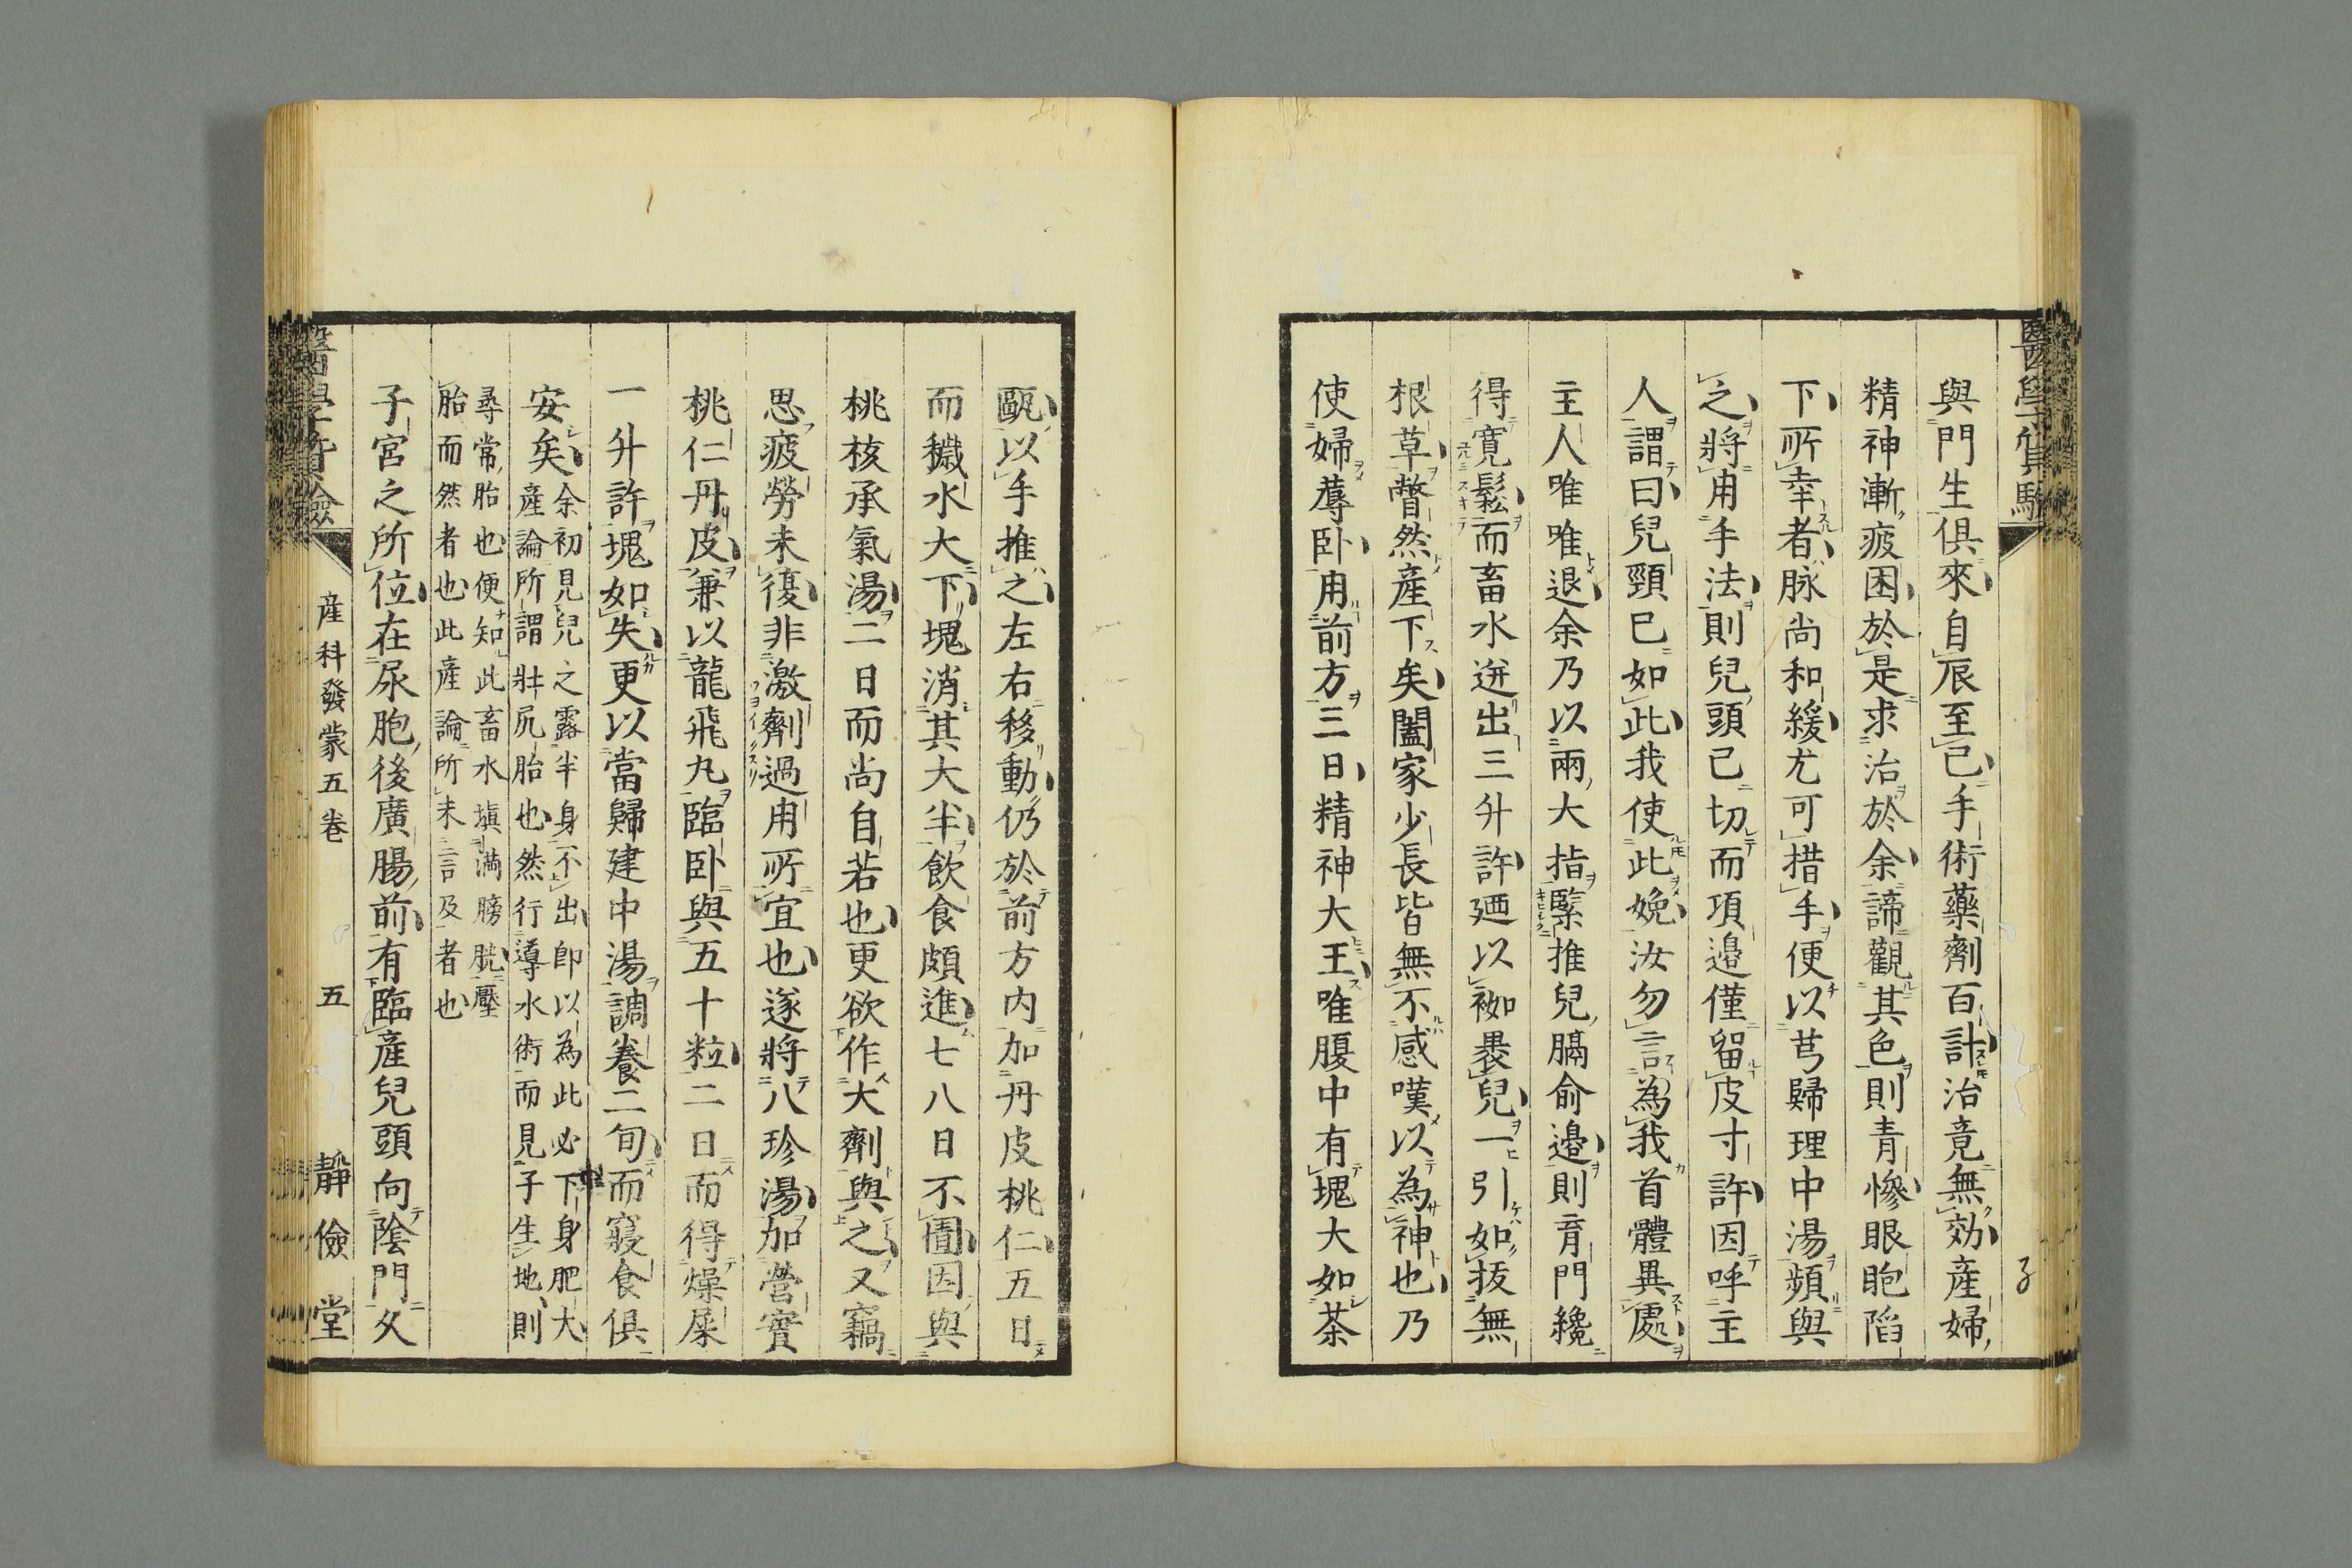 與門生俱來自辰至已手術藥劑百計治竟無効産婦
精神漸疲困於是求治於余諦觀其色則青慘眼眴陷
下所幸者脉尚和緩尤可措手便以芎歸理中湯頻與
之將用手法則兒頭已切而項邉僅留皮寸許因呼主
人謂曰兒頸已如此我使此娩汝勿言為我首體異處
主人唯唯退余乃以兩大指緊推兒膈俞邉則育門纔
得寛鬆而畜水迸出三升許廼以袽裹兒一引如拔無
根草瞥然産下矣闔家少長皆無不感嘆以為神也乃
使婦蓐卧用前方三日精神大王唯腹中有塊大如茶
甌以手推之左右移動仍於前方内加丹皮桃仁五日
而穢水大下塊消其大半飲食頗進七八日不圊因與
桃核承氣湯二日而尚自若也更欲作大劑與之又竊
思疲勞未復非激劑過用所宜也遂將八珍湯加營實
桃仁丹皮兼以龍飛丸臨卧與五十粒二日而得燥屎
一升許塊如失更以當歸建中湯調養二旬而寢食俱
安矣余初見兒之露半身不出卽以為此必下身肥大
産論所謂牀尻胎也然行導水術而見子生地則
尋常胎也便知此畜水塡滿膀胱壓
胎而然者也此産論所未言及者也
子宮之所位在尿胞後廣腸前有臨産兒頭向陰門夂
産科發蒙五卷 五 靜儉堂